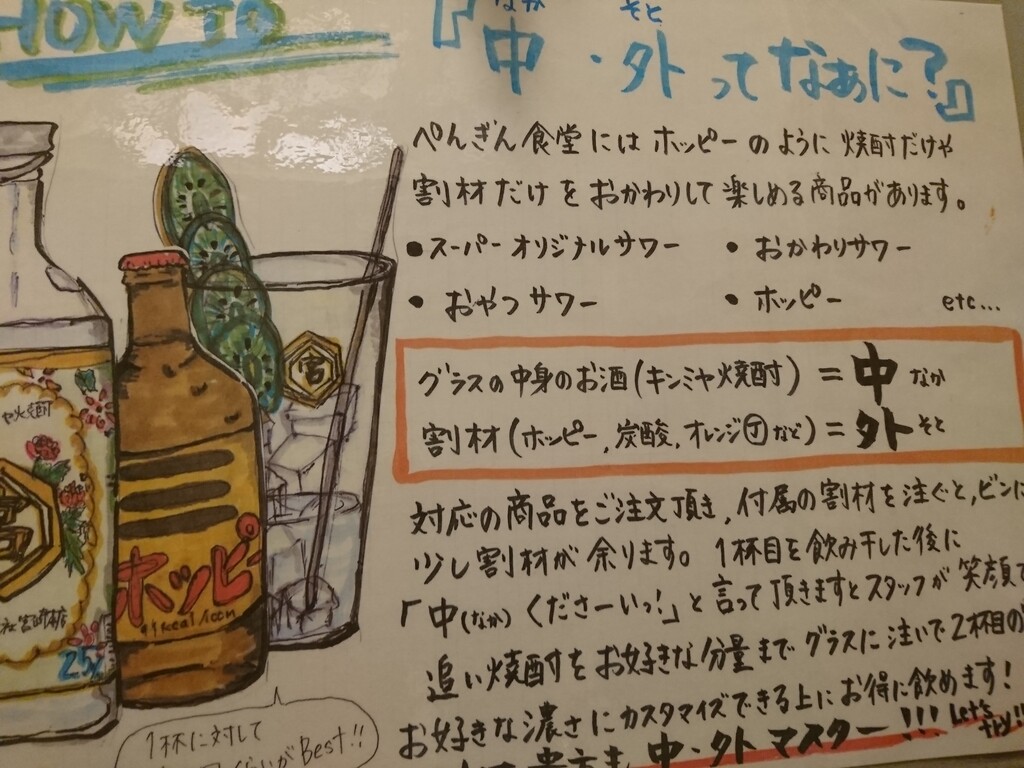 HOW TO
『中・外ってなぁに?』
なか そと
ぺんぎん食堂にはホッピーのように焼酎だけや
割材だけをおかわりして楽しめる商品があります。
•スーパーオリジナルサワー •おかわりサワー
•おやつサワー •ホッピー etc...
グラスの中身のお酒(キンミヤ焼酎)=中なか
割材(ホッピー,炭酸,オレンジⒿなど)=外そと
対応の商品をご注文頂き,付属の割材を注ぐと,ビンに
少し割材が余ります。1杯目を飲み干した後に
「中(なか)くださーいっ!」と言って頂きますとスタッフが笑顔で
追い焼酎をお好きな分量までグラスに注いで2杯目の
お好きな濃さにカスタマイズできる上にお得に飲めます!
中・外マスター!!! Let's try!!
宮
ヤ焼酎
宮
25%
ホッピー
1杯に対して
くらいがBest!!